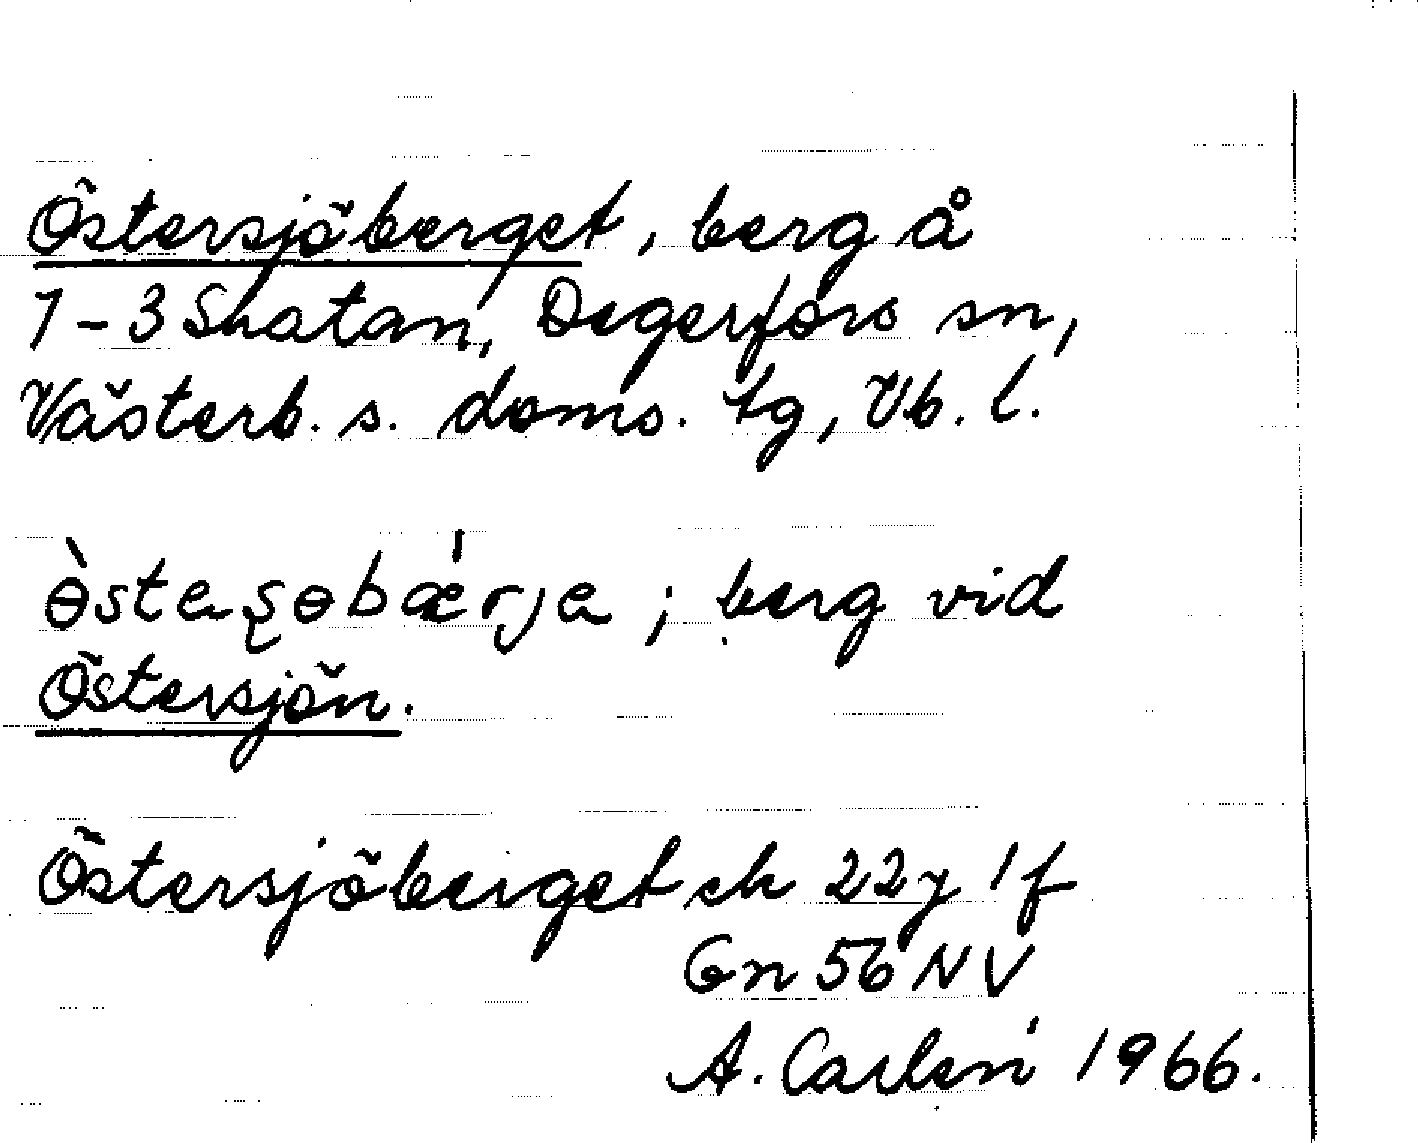 Östersjöberget, berg å
1-3 Snatan, Degerfors sn,
Västerb. s. doms. tg, Vb. l.
ɵ̀staʂɵbǽrja; berg vid
Östersjön.
Östersjöberget ek 22y 1f
Gn 56 NV
A. Carlén 1966.